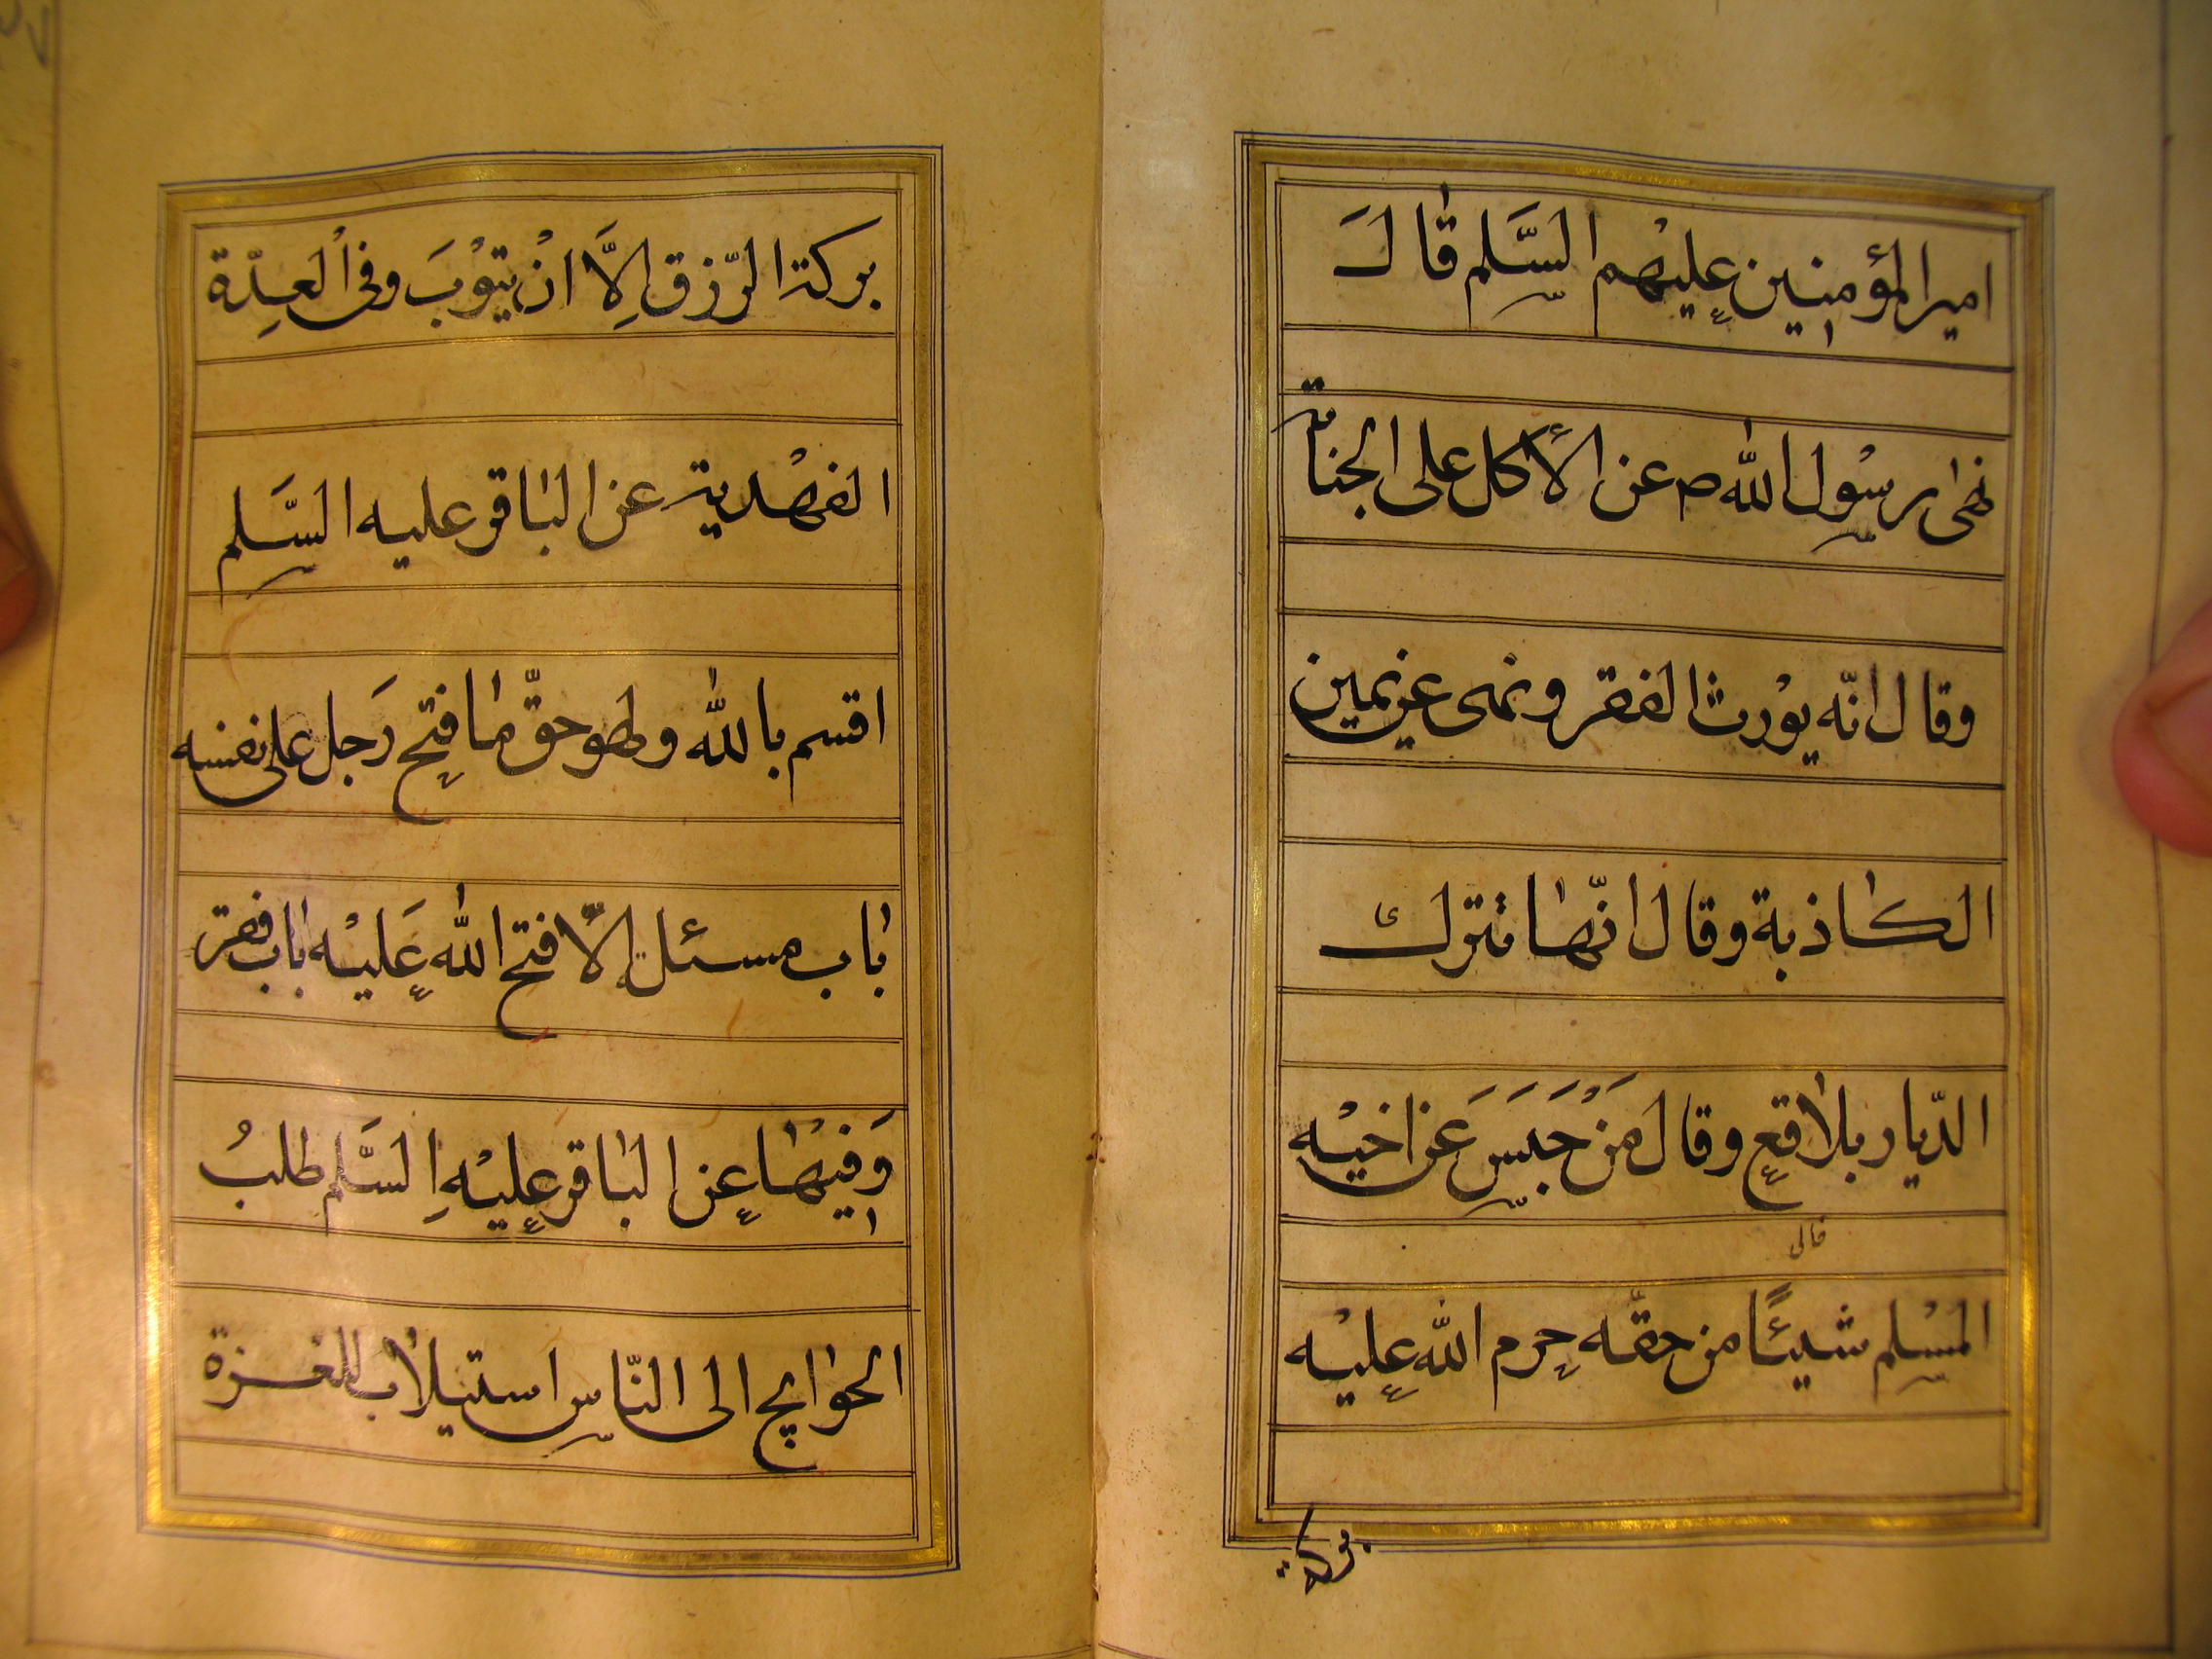 امير المؤمنين عليهم السّلم قال
نهى رسول الله ص عن الأكل على الجنابة
وقال انّه يورث الفقر ونهى عن يمين
الكاذبة وقال انّها تترك
الدّيار بلاقع وقال مَنْ حَبَسَ عَن اخيْه
قالى
المسْلم شيئًا من حقّه حرم الله عليْه
بركة
بركة الرّزق اِلَّا انْ يتوْبَ وفى العدّة
الفهْدية عن الباقر عليه السَّلم
اقسم بالله وهو حقّ ما فتح رَجل على نفسه
باب مسئلة الّا فتح الله عَليْه باب فقر
وَفيْها عن الباقر عليْه السَّلم طلبُ
الحوايج الى النّاس استيلاب للعزة